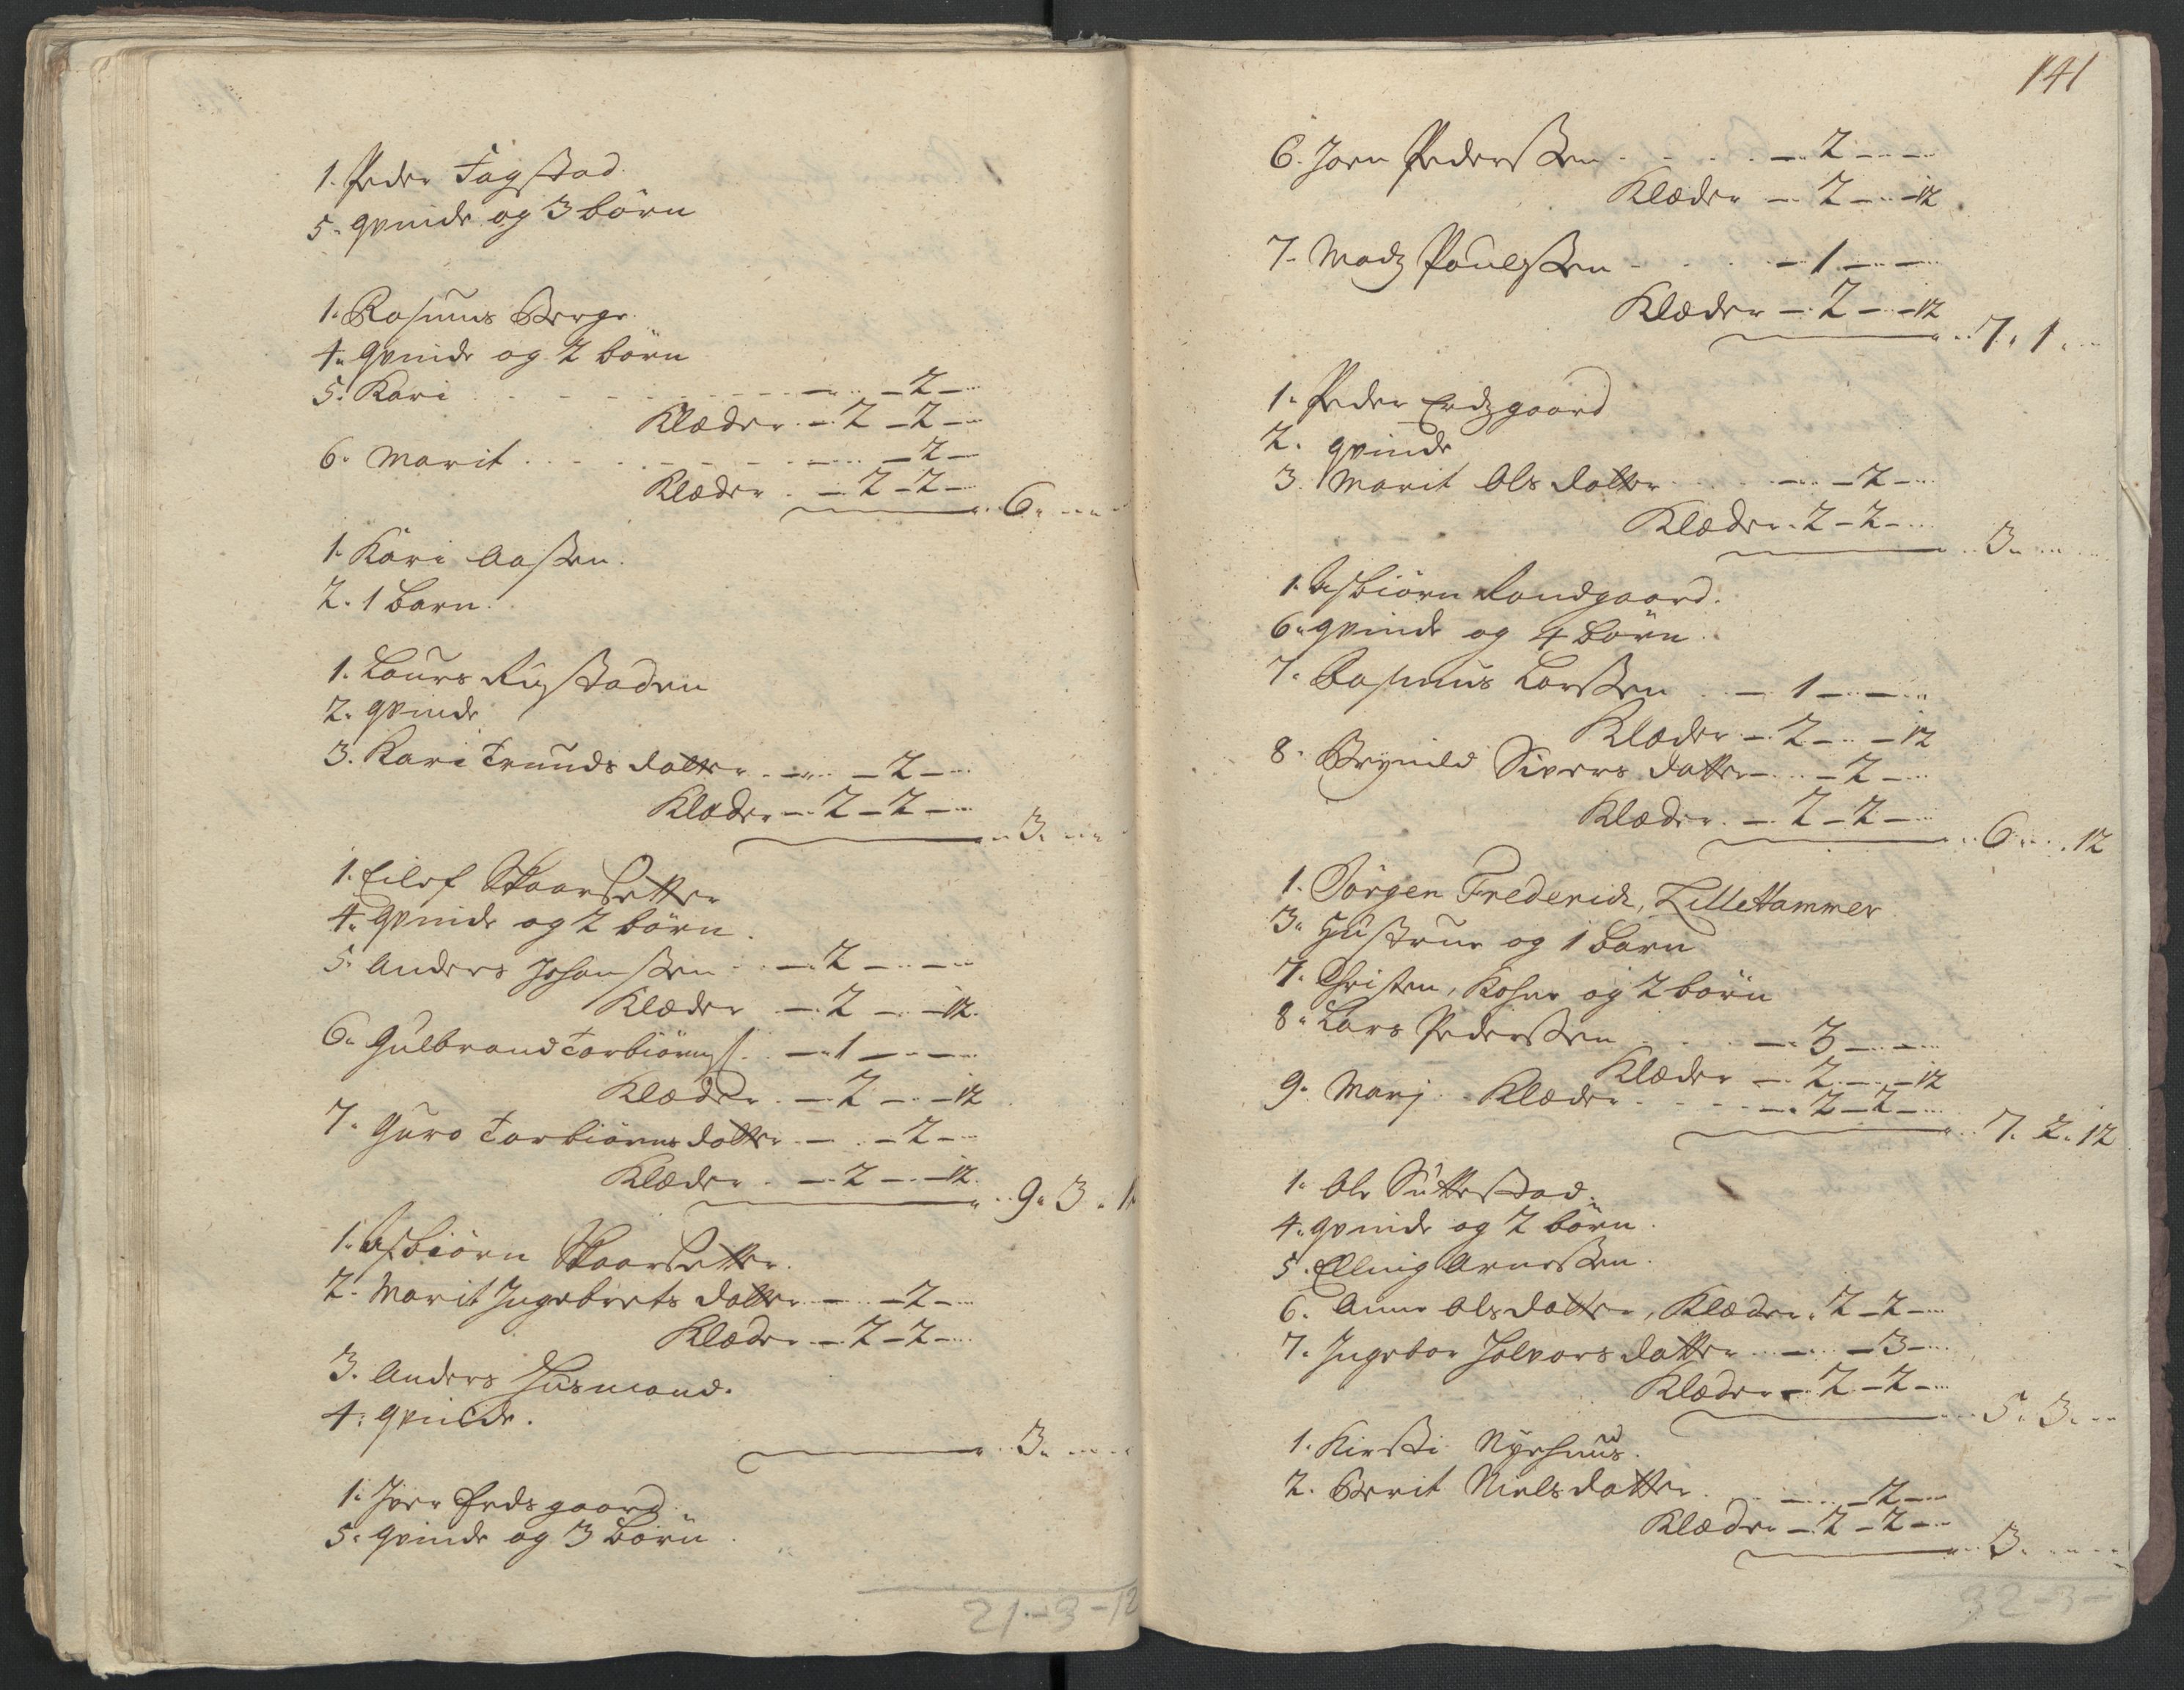 1. Peder Fagstad.
5. qvinde og 3 börn
1. Rasmus Berge.
4. qvinde og 2 börn
5. Kari - - - - 2 -
Klæder - 2 - 2 -
6. Marit - - - - 2 -
Klæder - 2 - 2 -
6.
1. Kari Aassen.
2. 1 barn.
1. Laurs Rustaden
2. qvinde
3. Kari Trunds datter - - 2 -
Klæder - 2 - 2 -
3.
1. Eilef Skaarsetter
4. qvinde og 2 börn.
5. Anders Johanssen - 2 - -
Klæder - 2 - - 12.
6. Gulbrand Torbiörns. - 1 - -
Klæder - 2 - - 12
7. Guro Torbiörnsdatter - - 2 -
Klæder - 2 - - 12.
9. 3. 1
1. Asbiörn Skaarsetter.
2. Marit Ingebrets datter - - 2 -
Klæder - 2 - 2 -
3. Anders Husmand.
4. qvinde.
3.
1. Joen Erdsgaard.
5. qvinde og 3 börn.
21 - 3 - 12
141
6. Joen Pederssen - - 2 - -
Klæder - 2 - - 12.
7. Madz Poulssen - - 1 - -
Klæder - 2 - - 12
7. 1.
1. Peder Erdzgaard
2. qvinde
3. Marit Ols datter - - 2 -
Klæder - 2 - 2 -
3.
1. Asbiörn Randgaard.
6. qvinde og 4 börn.
7. Rasmus Larssen - 1 - -
Klæder - 2 - - 12
8. Brynild Sivers datter - - 2 -
Klæder - 2 - 2 -
6. 12
1. Jörgen Frederich, Lillehammer
3. Hustrue og 1 barn
7. Christen, Kone og 2 börn
8. Lars Pederssen - 3 - -
Klæder - 2 - - 12
9. Marj. Klæder - - 2 - 2 -
7. 2. 12
1. Ole Suttestad.
4. qvinde og 2 börn.
5. Elling Arnessen.
6. Anne Olsdatter, Klæder. 2 - 2 -
7. Ingebor Halvors datter - - 3 -
Klæder - 2 - 2 -
5. 3.
1. Kirsti
2. Berit Nielsdatter - - 2 -
Klæder - 2 - 2 -
3.
32 - 3 -